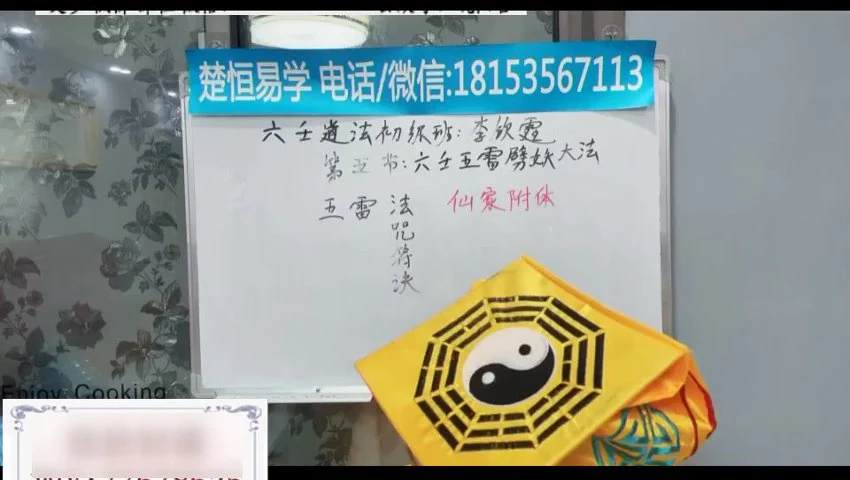 楚恒易学 电话/微信:18153567113
六壬道法初级班:李钦霆
第五节:六壬五雷劈妖大法
五雷 法 仙家附体
咒
符
诀
Enjoy Cooking